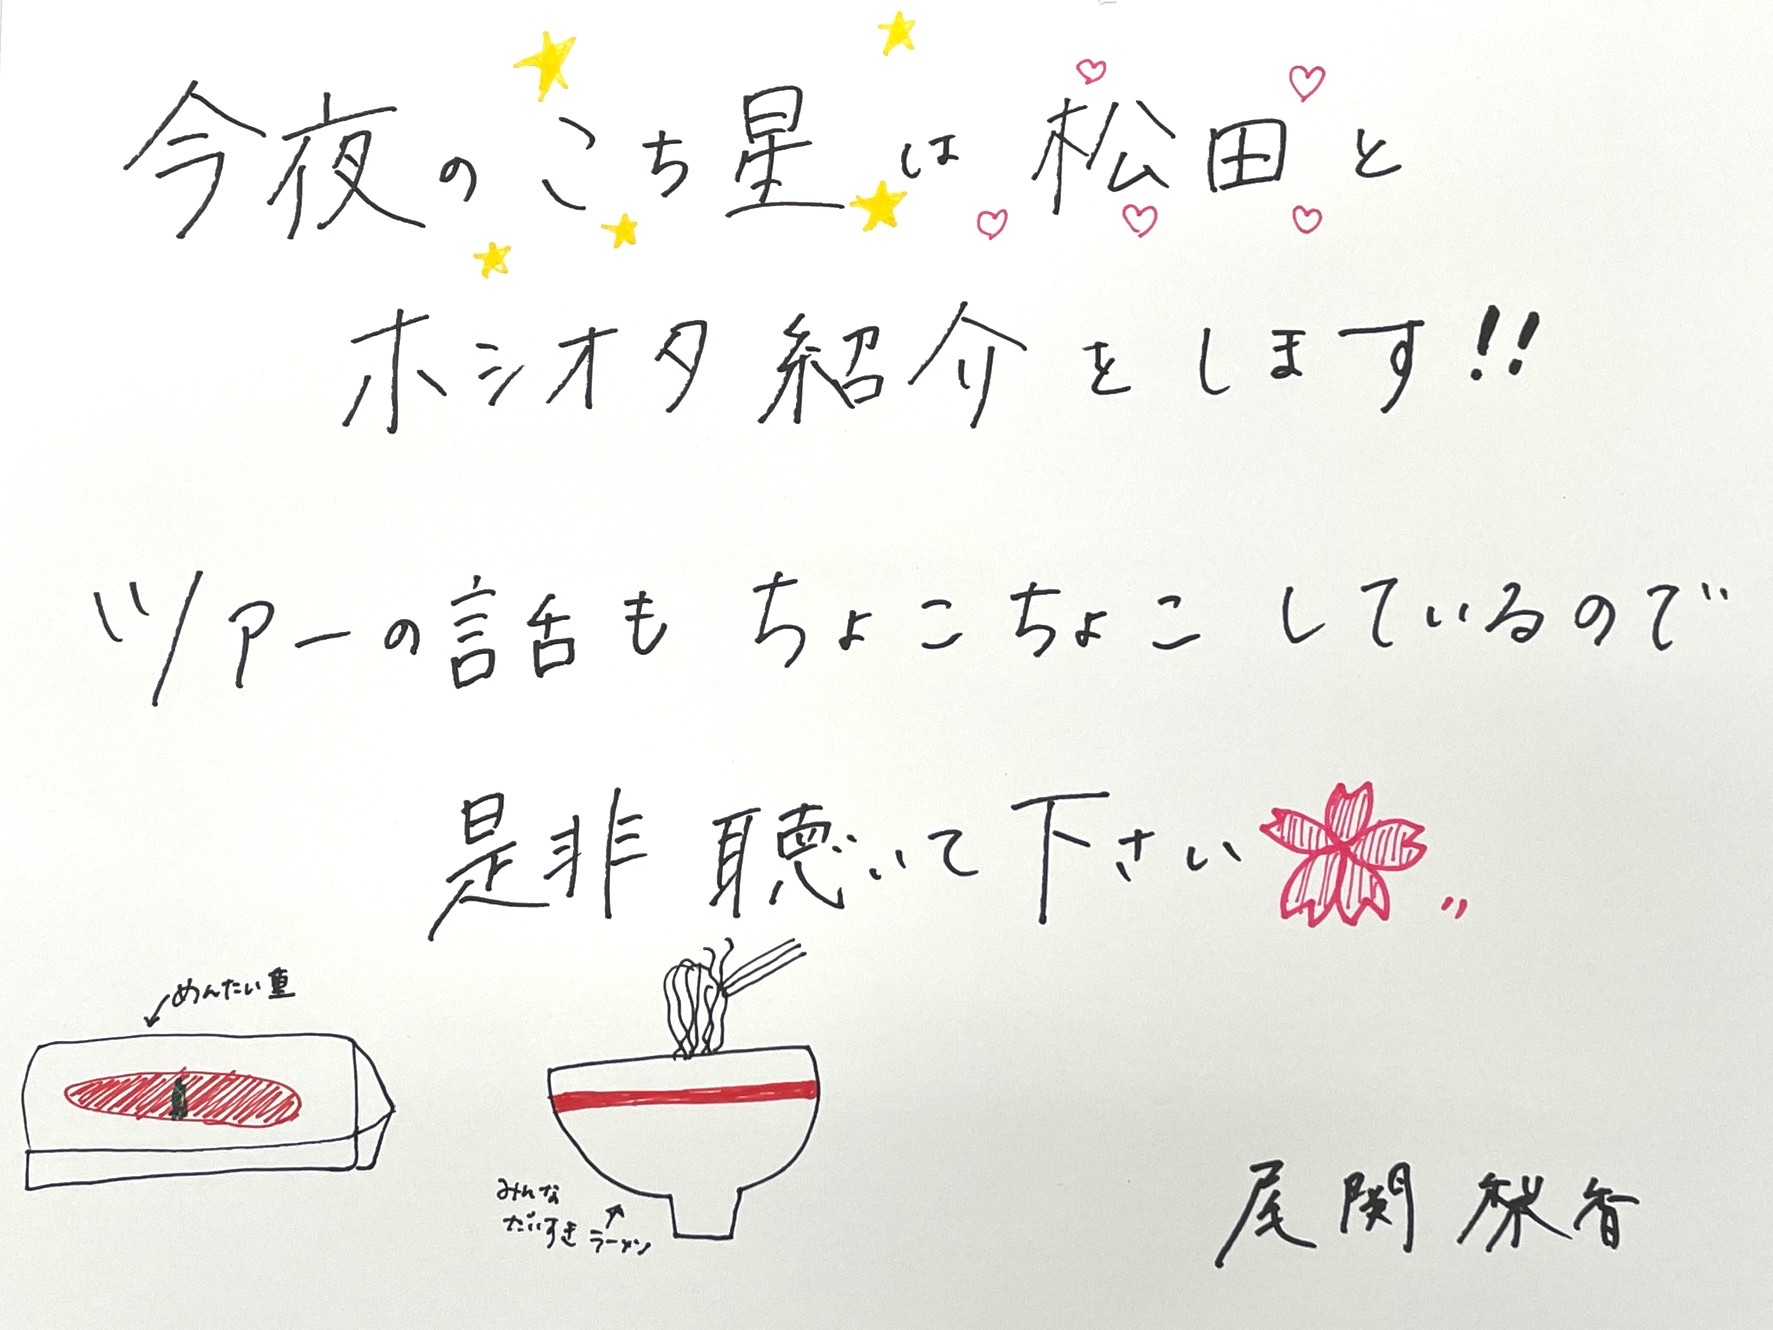 今夜のこち星は松田と
ホシオタ紹介をします!!
ツアーの話もちょこちょこしているので
是非聴いて下さい
めんたい重
みんな
だいすき
ラーメン
尾関梨香